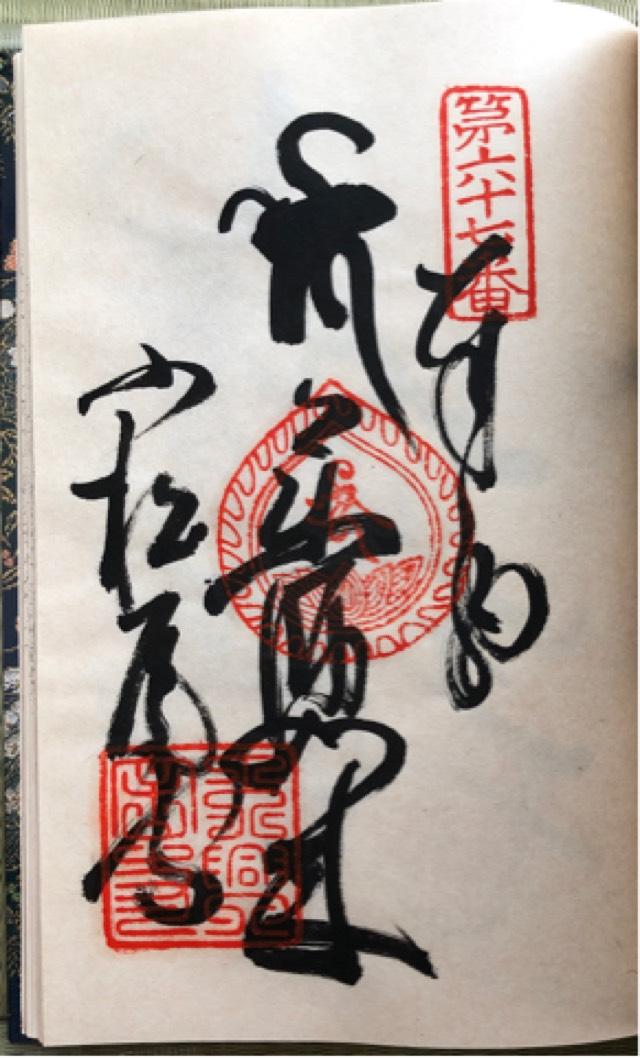 第六十七番
奉納
薬師如来
小松尾寺